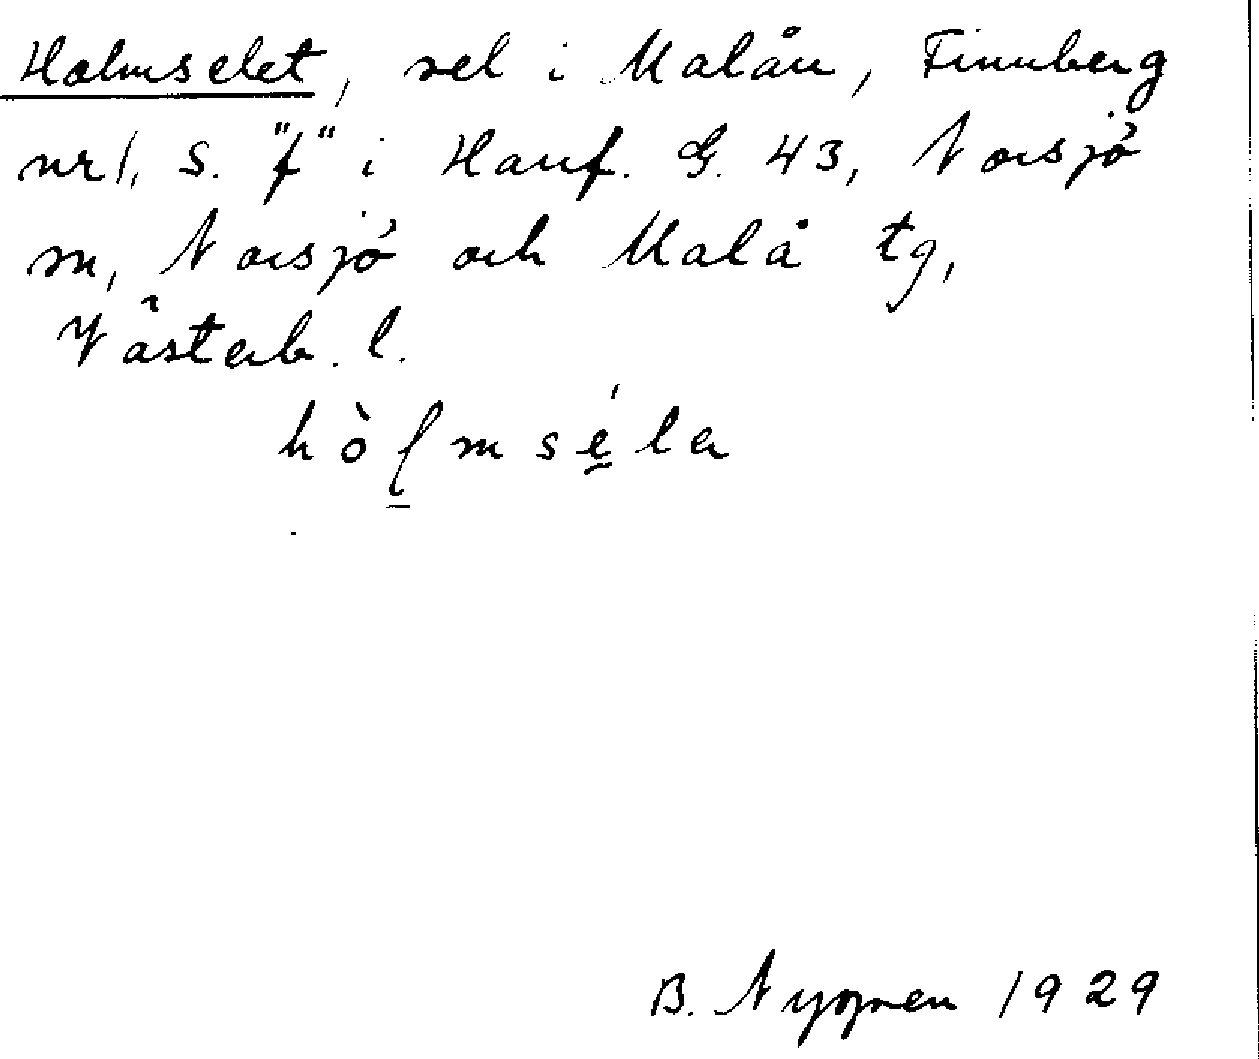 Holmselet, sel i Malån, Finnberg
nr 1, S. "f" i Hanf. G. 43, Norsjö
sn, Norsjö och Malå tg,
Västerb. l.
hòl̠msé̠la
B. Nygren 1929